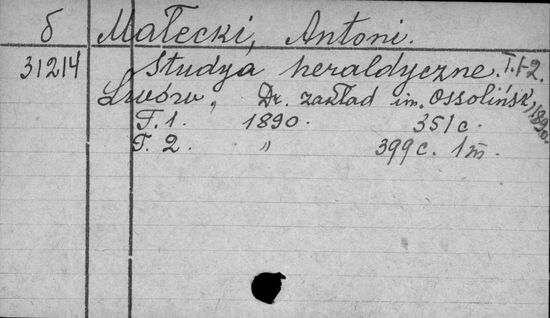 б Małecki, Antoni.
31214 Studya heraldyczne. T.1-2.
Lwów, Dr. zakład im. Ossolińsk, 1890.
T. 1. 1890. 351 c.
T. 2. " 399 c. 1 m.